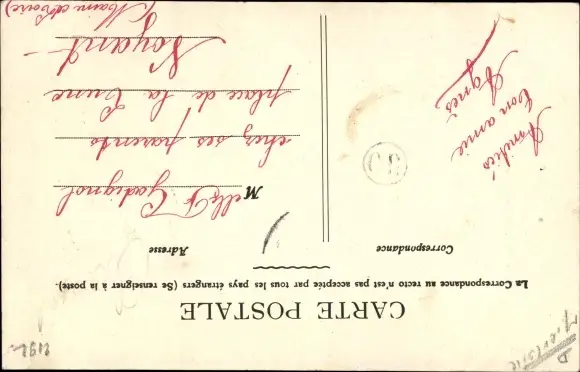 CARTE POSTALE
La Correspondance au recto n'est pas acceptée par tous les pays étrangers (Se renseigner à la poste).
Correspondance
Adresse
Amitiés
ton amie
Agnès
Melle F Godignol
chez ses parents
place de la
Noyant
(Maine et Loire)